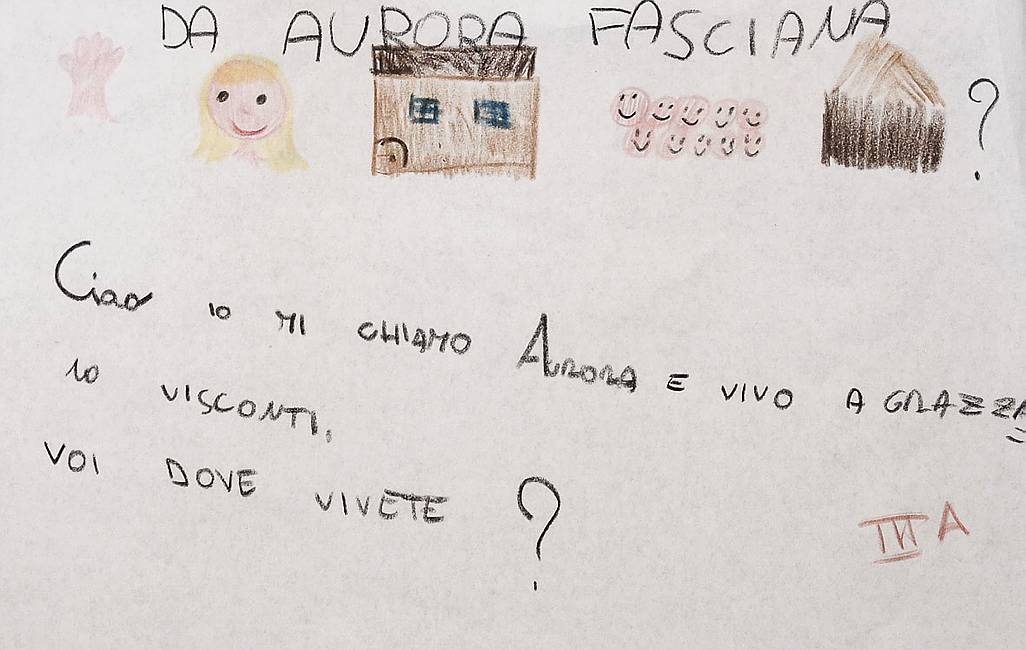 DA AURORA FASCIANA
?
Ciao io MI CHIAMO AURORA E VIVO A GRAZZA=
NO VISCONTI.
VOI DOVE VIVETE ?
III A